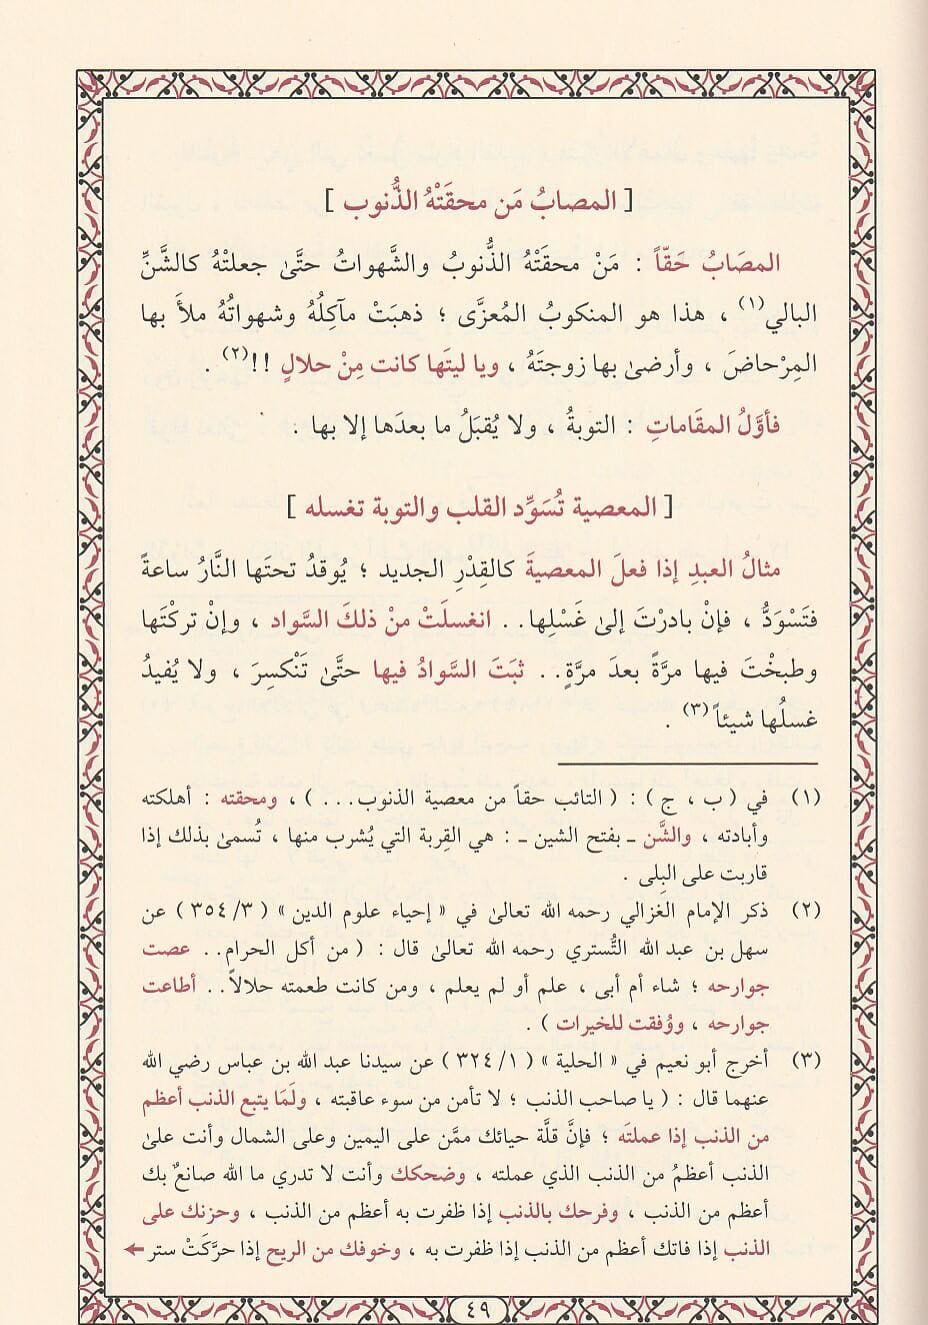 [ المصابُ مَن محقَتْهُ الذُّنوب ]
المصَابُ حَقّاً : مَنْ محقَتْهُ الذُّنوبُ والشَّهواتُ حتَّىٰ جعلتْهُ كالشَّنِّ
البالي(١) ، هذا هو المنكوبُ المُعزَّى ؛ ذهبَتْ مآكِلُهُ وشهواتُهُ ملأَ بها
المِرْحاضَ ، وأرضىٰ بها زوجتَهُ ، ويا ليتَها كانت مِنْ حلالٍ !!(٢) .
فأوَّلُ المقَاماتِ : التوبةُ ، ولا يُقبَلُ ما بعدَها إلا بها .
[ المعصية تُسَوِّد القلب والتوبة تغسله ]
مثالُ العبدِ إذا فعلَ المعصيةَ كالقِدْرِ الجديد ؛ يُوقدُ تحتَها النَّارُ ساعةً
فتَسْوَدُّ ، فإنْ بادرْتَ إلىٰ غَسْلِها.. انغسلَتْ منْ ذلكَ السَّواد ، وإنْ تركْتَها
وطبخْتَ فيها مرَّةً بعدَ مرَّةٍ.. ثبَتَ السَّوادُ فيها حتَّىٰ تَنْكسِرَ ، ولا يُفيدُ
غسلُها شيئاً(٣) .
(١) في ( ب ، ج ) : ( التائب حقاً من معصية الذنوب... ) ، ومحقته : أهلكته
وأبادته ، والشَّن ـ بفتح الشين ـ : هي القِربة التي يُشرب منها ، تُسمىٰ بذلك إذا
قاربت على البِلى .
(٢) ذكر الإمام الغزالي رحمه الله تعالىٰ في « إحياء علوم الدين » ( ٣/ ٣٥٤ ) عن
سهل بن عبد الله التُّستري رحمه الله تعالىٰ قال : ( من أكل الحرام.. عصت
جوارحه ؛ شاء أم أبى ، علم أو لم يعلم ، ومن كانت طعمته حلالاً.. أطاعت
جوارحه ، ووُفقت للخيرات ) .
(٣) أخرج أبو نعيم في « الحلية » ( ١/ ٣٢٤ ) عن سيدنا عبد الله بن عباس رضي الله
عنهما قال : ( يا صاحب الذنب ؛ لا تأمن من سوء عاقبته ، ولَمَا يتبع الذنب أعظم
من الذنب إذا عملتَه ؛ فإنَّ قلَّة حيائك ممَّن على اليمين وعلى الشمال وأنت علىٰ
الذنب أعظمُ من الذنب الذي عملته ، وضحكك وأنت لا تدري ما الله صانعٌ بك
أعظم من الذنب ، وفرحك بالذنب إذا ظفرت به أعظم من الذنب ، وحزنك على
الذنب إذا فاتك أعظم من الذنب إذا ظفرت به ، وخوفك من الريح إذا حرَّكَتْ ستر ←
٤٩